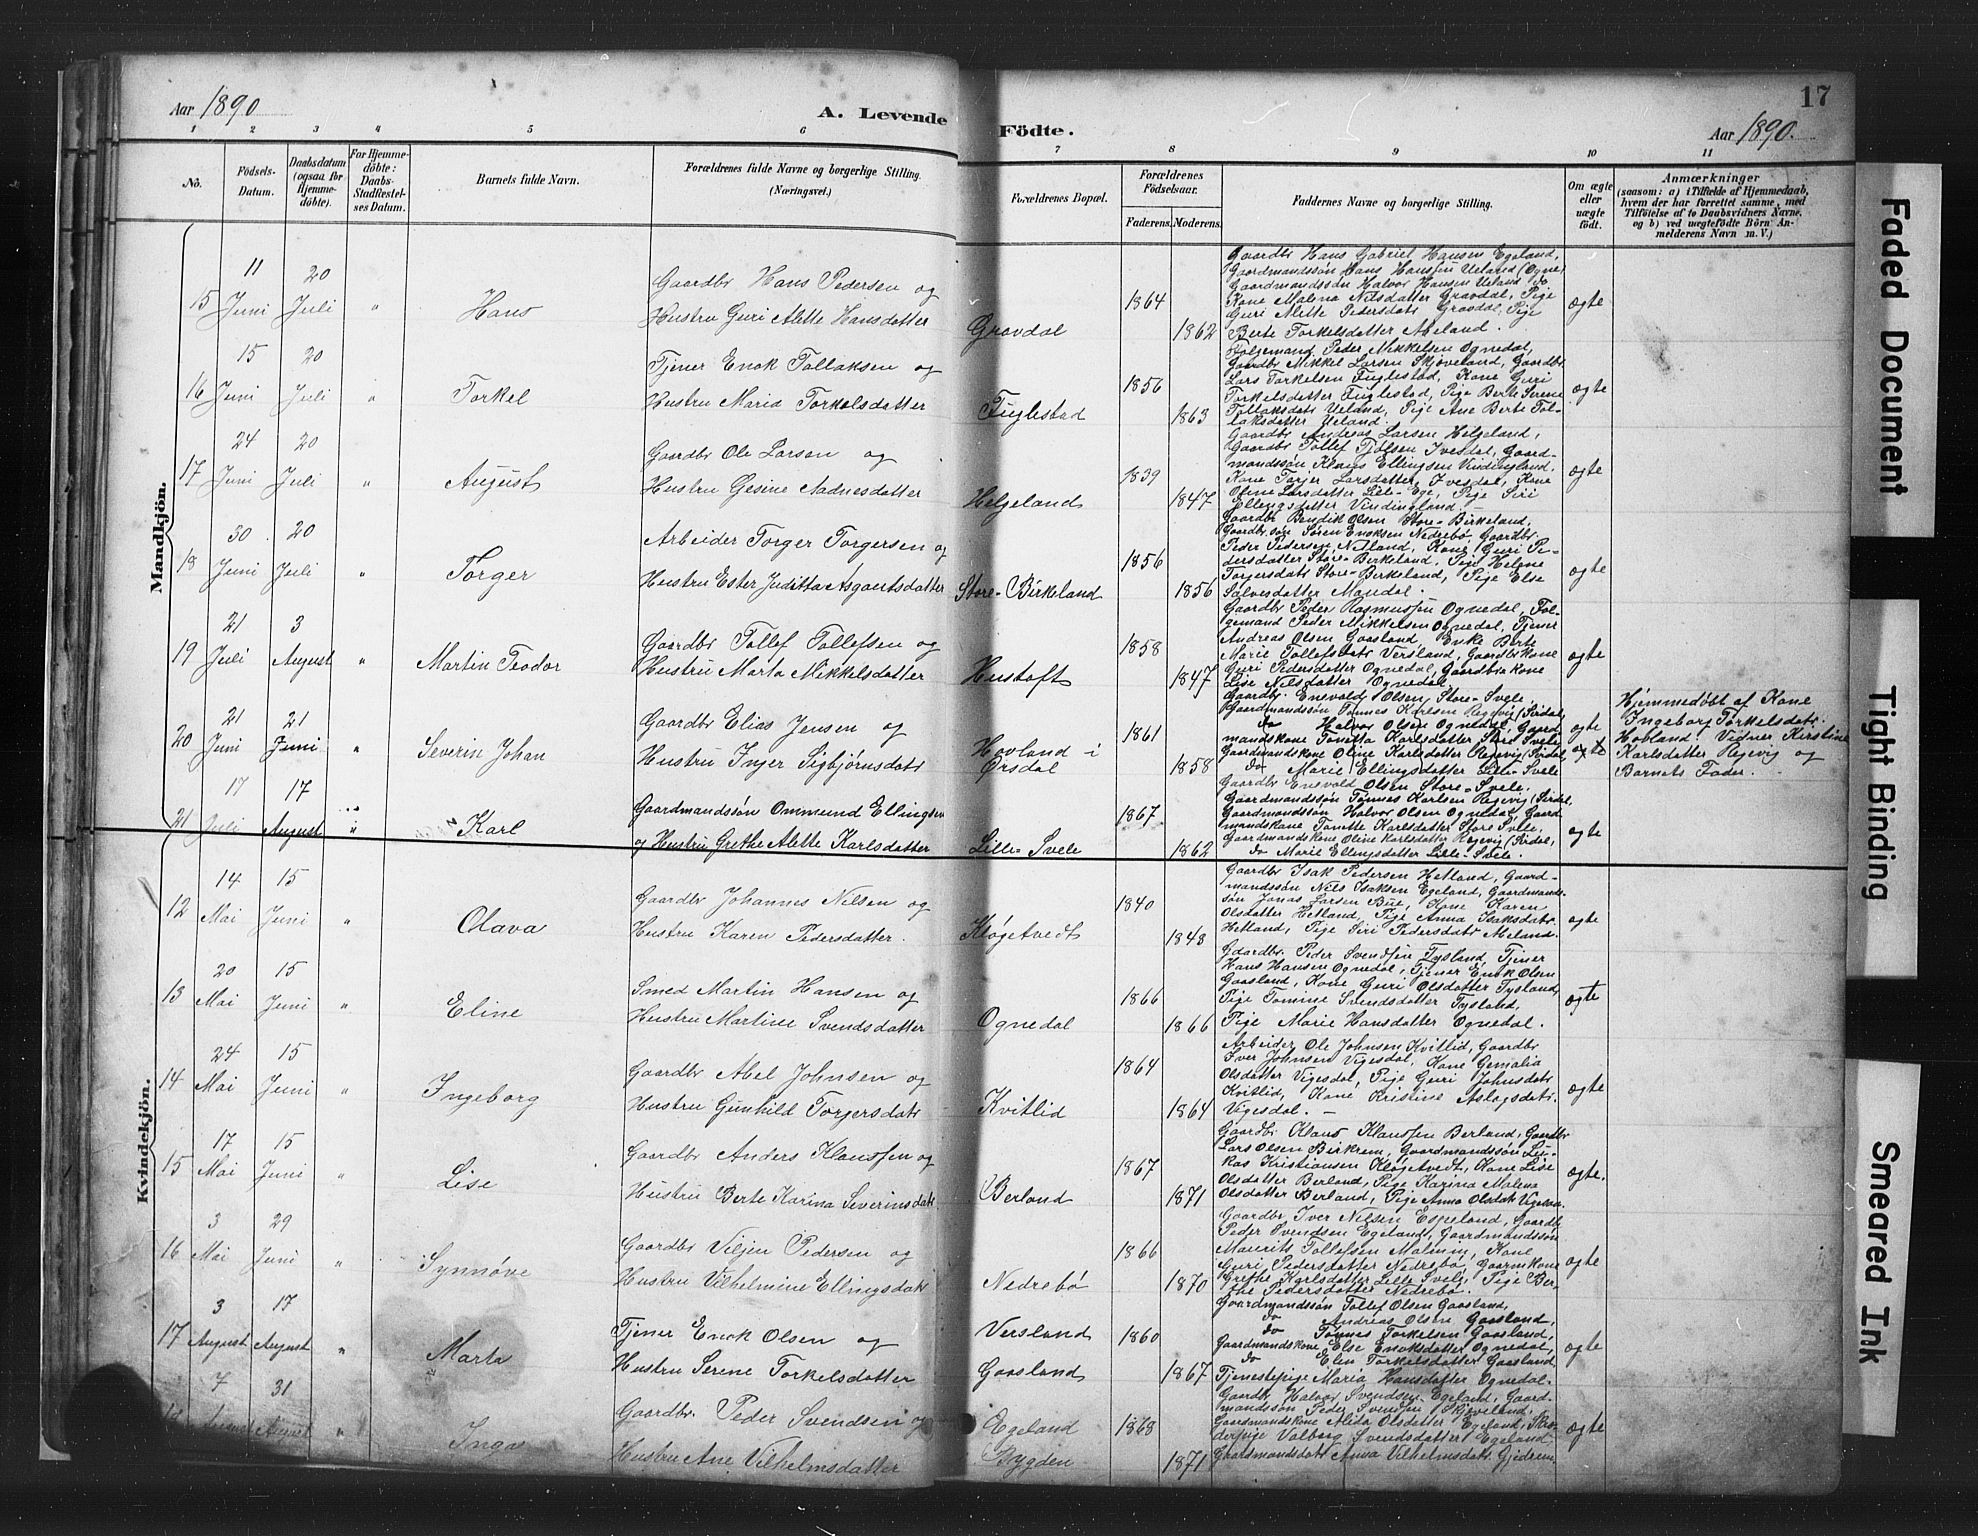 Aar 1890
A. Levende
Födte.
Aar 1890.
17
1 2 3 4 5 6 7 8 9 10 11
No.
Födsels-
Datum.
Daabsdatum
(ogsaa for
Hjemme-
döbte).
For Hjemme-
döbte:
Daabs-
Stadfæstel-
ses Datum.
Barnets fulde Navn.
Forældrenes fulde Navne og borgerlige Stilling.
(Næringsvei.)
Forældrenes Bopæl.
Forældrenes
Födselsaar.
Faderens. Moderens.
Faddernes Navne og borgerlige Stilling.
Om ægte
eller
uægte
födt.
Anmærkninger
(saasom: a) i Tilfælde af Hjemmedaab,
hvem der har forrettet samme, med
Tilföielse af to Daabsvidners Navne,
og b) ved uægtefödte Börn: An-
melderens Navn m. V.)
Mandkjön.
15 11 Juni 20 Juli " Hans
Gaardbr Hans Pedersen og
Hustru Guri Alette Hansdatter
Gravdal 1864 1862
Gaardbr Hans Gabriel Hansen Egeland,
Gaardmandssön Hans Hansen Ueland (Ogne)
Gaardmandssön Halvor Hansen Ueland do
Kone Malena Nilsdatter Gravdal, Pige
Guri Alette Pedersdatr Gravdal, Pige
Berte Torkelsdatter Aaseland.
ægte
16 15 Juni 20 Juli " Torkel
Tjener Enok Tollaksen og
Hustru Maria Torkelsdatter
Fuglestad 1856 1863
Folgemand Peder Mikkelsen Ognedal,
Gaardbr Mikkel Larsen Skjæveland, Gaardbr
Lars Torkelsen Fuglestad, Kone Guri
Torkelsdatter Fuglestad, Pige Berte Serene
Tollaksdatr Ueland, Pige Ane Berte Tol-
laksdatter Ueland.
ægte
17 24 Juni 20 Juli " August
Gaardbr Ole Larsen og
Hustru Gesine Aadnesdatter
Helgeland 1839 1847
Gaardbr Andreas Larsen Helgeland,
Gaardbr Tollef Tjölsen Ivesdal, Gaard-
mandssön Klaus Ellingsen Vindingland,
Kone Torjer Larsdatter Ivesdal, Kone
Oline Larsdatter Lille-Ege, Pige Siri
Ellingsdatter Vindingland.
ægte
18 30 Juni 20 Juli " Torger
Arbeider Torger Torgersen og
Hustru Ester Juditta Asgautsdatter
Store-Birkeland 1856 1856
Gaardbr Bendik Olsen Store-Birkeland,
Gaardbr.sön Sören Enoksen Nedrebö, Gaardbr.
Peder Pedersen Netland, Kone Guri Pe-
dersdatter Store-Birkeland, Pige Helene
Torgersdatr Store-Birkeland, Pige Else
Salvesdatter Mandal.
ægte
19 21 Juli 3 August " Martin Teodor
Gaardbr Tollef Tollefsen og
Hustru Marta Mikkelsdatter
Hustoft 1858 1847
Gaardbr Peder Rasmussen Ognedal, Fol-
gemand Peder Mikkelsen Ognedal, Tjener
Andreas Olsen Gaasland, Enke Berte
Marie Tollefsdatr Versland, Gaardbrkone
Guri Pedersdatter Ognedal, Gaardbrskone
Lise Nilsdatter Ognedal
ægte
20 21 Juni 21 Juni " Severin Johan
Gaardbr Elias Jensen og
Hustru Inger Sigbjörnsdatr
Hovland i
Örsdal 1861 1858
Gaardbr. Enevald Olsen Store-Svele,
Gaardmandssön Tönnes Karlsen Regevig (Sirdal,
do Halvor Olsen Ognedal, Gaard-
mandskone Tonette Karlsdatter Store Svele
Gaardmandskone Oline Karlsdatter Regevig (Sirdal
do Marie Ellingsdatter Lille-Svele
ægte
Hjemmedöbt af Kone
Ingeborg Torkelsdatr.
Hovland. Vidner Kirstine
Karlsdatter Regevig og
Barnets Fader.
21 17 Juli 17 August " Karl
Gaardmandssön Ommund Ellingsen
og Hustru Grethe Alette Karlsdatter
Lille-Svele 1867 1862
Gaardbr Enevold Olsen Store-Svele,
Gaardmandssön Tönnes Karlsen Regevig (Sirdal,
Gaardmandssön Halvor Olsen Ognedal, Gaard-
mandskone Tonette Karlsdatter Store Svele,
Gaardmandskone Oline Karlsdatter Regevig (Sirdal,
do Marie Ellingsdatter Lille-Svele.
ægte
Kvindekjön.
12 14 Mai 15 Juni " Olava
Gaardbr Johannes Nilsen og
Hustru Karen Pedersdatter.
Klögetvedt 1840 1848
Gaardbr Isak Pedersen Hetland, Gaard-
mandssön Nils Isaksen Egeland, Gaardmands-
sön Jonas Larsen Bue, Kone Karen
Olsdatter Hetland, Pige Anna Isaksdatr
Hetland, Pige Siri Pedersdatr Meland.
ægte
13 20 Mai 15 Juni " Eline
Smed Martin Hansen og
Hustru Martine Svendsdatter
Ognedal 1866 1866
Gaardbr. Peder Svendsen Tysland, Tjener
Hans Hansen Ognedal, Tjener Enok Olsen
Gaasland, Kone Guri Olsdatter Tysland,
Pige Tomine Svendsdatter Tysland,
Pige Marie Hansdatter Ognedal.
ægte
14 24 Mai 15 Juni " Ingeborg
Gaardbr Abel Johnsen og
Hustru Gunhild Torgersdatr
Kvitlid 1864 1864
Arbeider Ole Johnsen Kvitlid, Gaardbr
Iver Johnsen Vigesdal, Kone Gemalia
Olsdatter Vigesdal, Pige Guri Johnsdatr
Kvitlid, Kone Kristine Aslagsdatr.
Vigesdal.
ægte
15 17 Mai 15 Juni " Lise
Gaardbr Anders Klaussen og
Hustru Berte Karina Severinsdatr.
Berland 1867 1871
Gaardbr. Klaus Klaussen Berland, Gaardbr
Lars Olsen Birkrem, Gaardmandssön Lu-
kas Kristiansen Klögetvedt, Kone Lise
Olsdatter Berland, Pige Karina Malena
Olsdatter Berland, Pige Anna Olsdatr
ægte.
16 3 Mai 29 Juni " Synnöve
Gaardbr Viljen Pedersen og
Hustru Vilhelmine Ellingsdatr
Nedrebö 1866 1870
Gaardbr Iver Nilsen Espeland, Gaardbr
Peder Svendsen Egeland, Gaardmandssön
Maurits Tollefsen Malmin, Kone
Guri Pedersdatter Nedrebö, Gaarmkone
Grethe Karlsdatter Lille Svele, Pige Ber-
the Pedersdatter Nedrebö.
ægte
17 3 August 17 August " Marta
Tjener Enok Olsen og
Hustru Serene Torkelsdatter
Versland
Gaasland 1860 1867
Gaardmandssön Tollef Olsen Gaasland,
do Andreas Olsen Gaasland,
do Tönnes Torkelsen Gaasland,
Gaardmandskone Else Enoksdatter Ognedal,
do Elin Torkelsdatter Gaasland
Tjenestepige Maria Hansdatter Ognedal.
ægte
18 7 August 31 August " Inga
Gaardbr. Peder Svendsen og
Hustru Ane Vilhelmsdatter
Egeland
Bygden 1868 1871
Gaardbr Halvor Svendsen Egeland, Gaard-
mandssön Peder Svendsen Skjæveland,
Gaardmandskone Alida Olsdatter Egeland, Skræ-
derpige Valborg Svendsdatter Egeland,
Gaardmandsdatr Anna Vilhelmsdatr Gjedrem.
ægte
Faded Document
Tight Binding
Smeared Ink